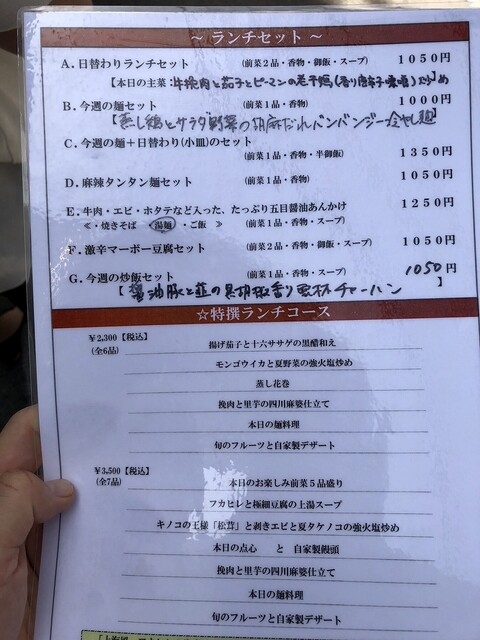 ～ ランチセット ～
A．日替わりランチセット (前菜２品・香物・御飯・スープ) １０５０円
【本日の主菜：牛挽肉と茄子とピーマンの老干媽(香り唐辛子味噌)炒め
B．今週の麺セット (前菜１品・香物) １０００円
【蒸し鶏とサラダ野菜の胡麻だれバンバンジー冷やし麺】
C．今週の麺＋日替わり(小皿)のセット
(前菜１品・香物・半御飯) １３５０円
D．麻辣タンタン麺セット (前菜１品・香物) １０５０円
E．牛肉・エビ・ホタテなど入った、たっぷり五目醤油あんかけ １２５０円
≪ ・焼きそば ・湯麺 ・ご飯 ≫ (前菜１品・香物・スープ)
F．激辛マーボー豆腐セット (前菜２品・香物・御飯・スープ) １０５０円
G．今週の炒飯セット (前菜１品・香物・スープ) 1050円
【醤油豚と韮の黒胡椒香り チャーハン 】
☆特撰ランチコース
￥2,300【税込】
(全6品)
揚げ茄子と十六ササゲの黒醋和え
モンゴウイカと夏野菜の強火塩炒め
蒸し花巻
挽肉と里芋の四川麻婆仕立て
本日の麺料理
旬のフルーツと自家製デザート
￥3,500【税込】
(全7品)
本日のお楽しみ前菜５品盛り
フカヒレと極細豆腐の上湯スープ
キノコの王様『松茸』と剥きエビと夏タケノコの強火塩炒め
本日の点心 と 自家製饅頭
挽肉と里芋の四川麻婆仕立て
本日の麺料理
旬のフルーツと自家製デザート